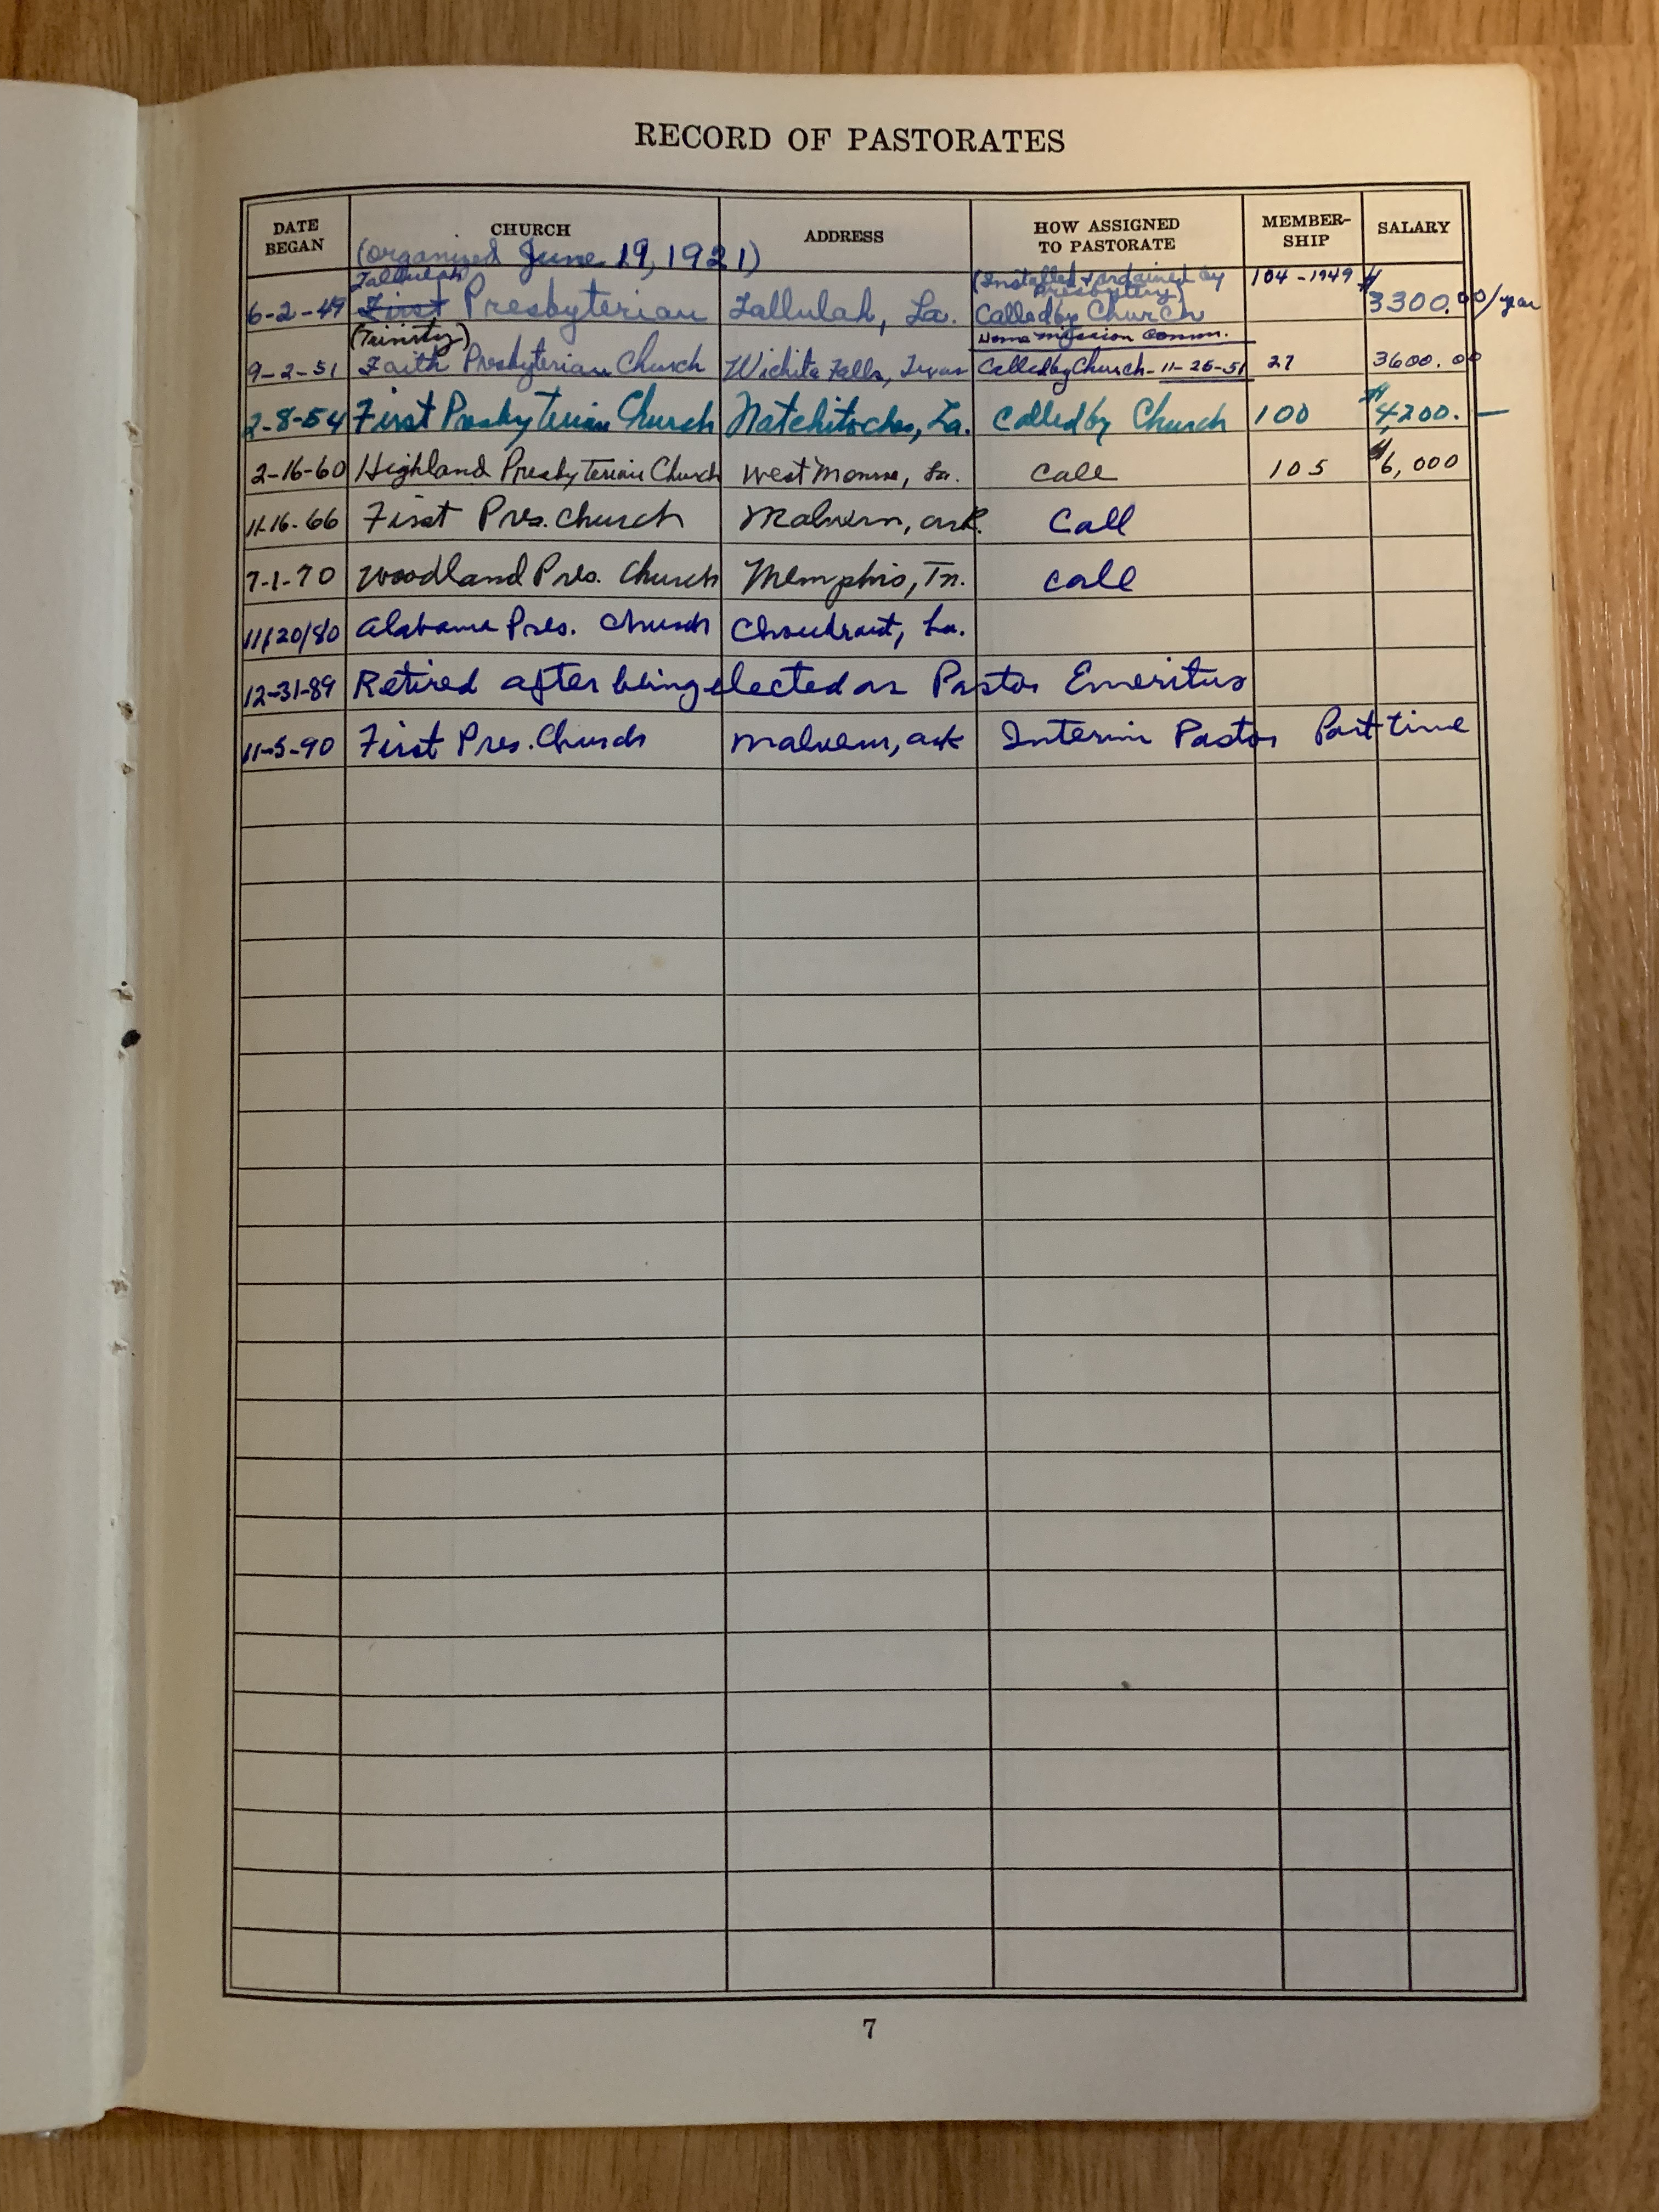 RECORD OF PASTORATES
DATE BEGAN CHURCH ADDRESS HOW ASSIGNED TO PASTORATE MEMBER-SHIP SALARY
(organized June 19, 1921)
Tallulah (Installed & ordained by Presbytery) 104 - 1949
6-2-49 First Presbyterian Tallulah, La. Called by Church $3300.00/year
(Trinity) Home Mission Comm.
9-2-51 Faith Presbyterian Church Wichita Falls, Texas Called by Church - 11-25-51 27 3600.00
2-8-54 First Presbyterian Church Natchitoches, La. Called by Church 100 $4,200.—
2-16-60 Highland Presbyterian Church West Monroe, La. Call 105 $6,000
11-16-66 First Pres. Church Malvern, Ark. Call
7-1-70 Woodland Pres. Church Memphis, Tn. Call
11/20/80 Alabama Pres. Church Choudrant, La.
12-31-89 Retired after being elected as Pastor Emeritus
11-5-90 First Pres. Church Malvern, Ark Interim Pastor Part time
7